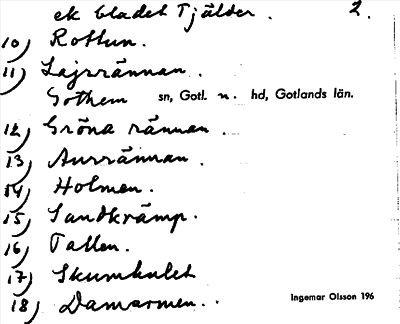 ek bladet Tjälder. 2.
10) Rottun.
11) Lajrrännan.
Gothem sn, Gotl. n. hd, Gotlands län.
12) Gröna rännan.
13) Aurrännan.
14) Holmen.
15) Sandkrämp.
16) Tallen.
17) Skumhulet
18) Damarmen.
Ingemar Olsson 196